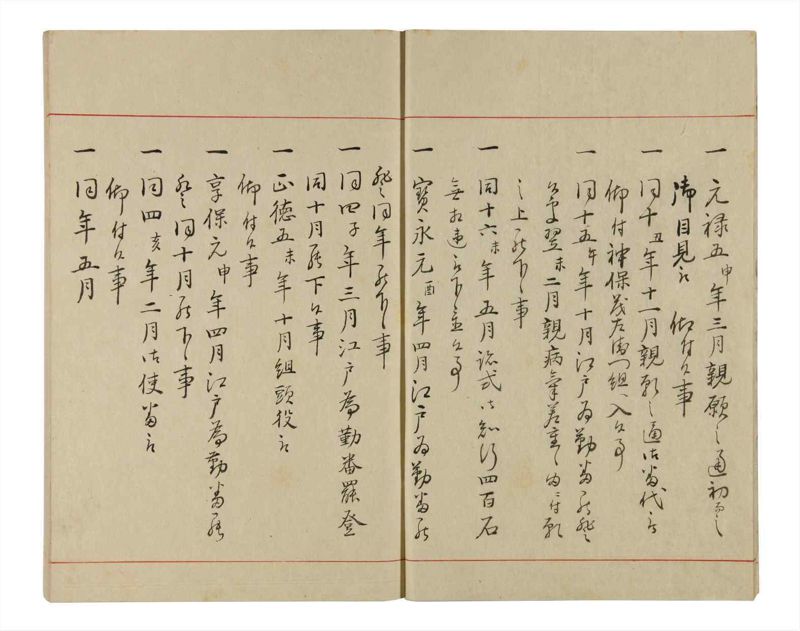 一 元禄五申年三月親願之通初而之
御目見被 仰付候事
一 同十丑年十一月親願之通御番代被
仰付神保茂左衛門組へ入候事
一 同十五午年十月江戸為勤番罷登
翌未二月親病気差重候ニ付願
之上罷下候事
一 同十六未年五月跡式御知行四百石
無相違被下置候事
一 寳永元酉年四月江戸為勤番罷
登同年罷下候事
一 同四子年三月江戸為勤番罷登
同十月罷下候事
一 正徳五未年十月組頭役被
仰付候事
一 享保元申年四月江戸為勤番罷
登同十月罷下候事
一 同四亥年二月御使番被
仰付候事
一 同年五月